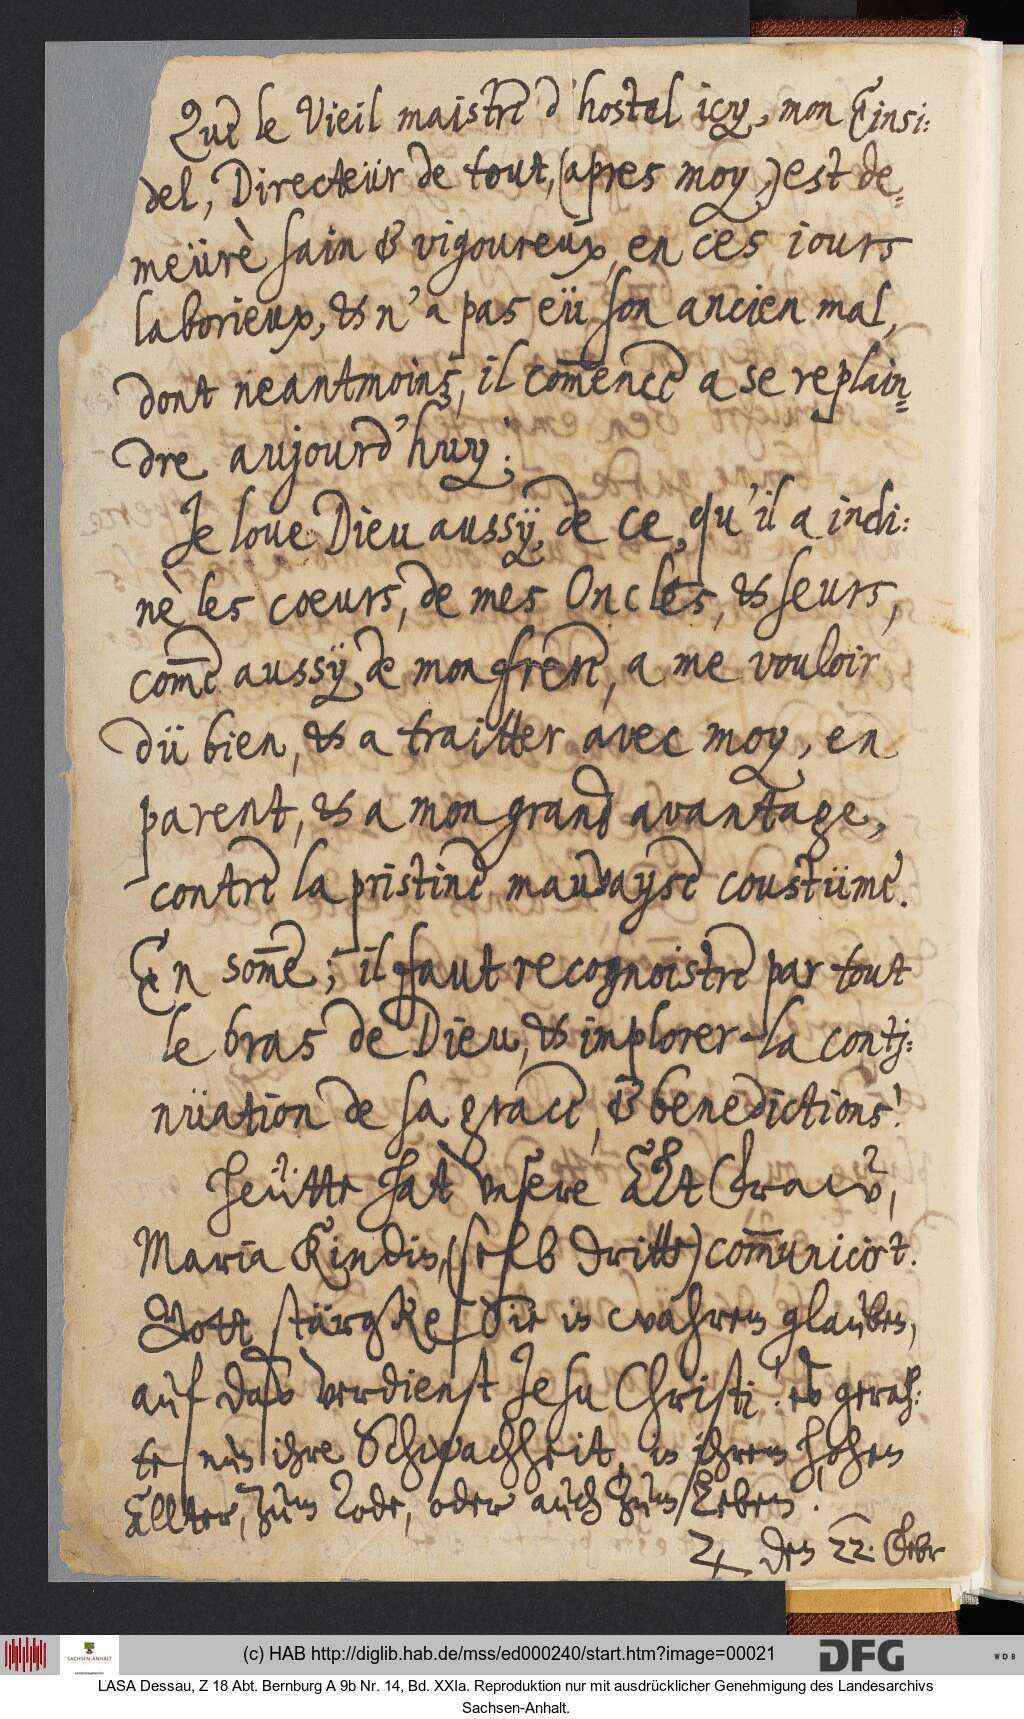 Que le Vieil maistre d'hostel icy, mon Einsi:
del, Directeür de tout, (apres moy,) est de=
meürè sain & vigoureux, en ces iours
laborieux, & n'a pas eü son ancien mal,
dont neantmoins, il com̄ence a se replain=
dre aujourd'huy.
Je loue Dieu aussÿ, de ce, qu'il a incli:
nè les coeurs, de mes Oncles, & seurs,
com̄e aussÿ de mon frere, a me vouloir
dü bien, & a traitter avec moy, en
parent, & a mon grand avantage,
contre la pristine mauvayse coustüme.
En som̄e; il faut recognoistre par tout
le bras de Dieu, & implorer la contj:
nüation de sa grace, & benedictions!
Heütte hat unsere Alt Fraw,
Maria Kindis, (selb dritte) com̄unicirt.
Gott stärgke Sie in wahrem glauben,
auf daß verdienst Jesu Christi! es gerah:
te nun ihre Schwachheit, in ihrem hohen
Allter, zum Tode, oder auch zum Leben!
♃ den 22. Febr
(c) HAB http://diglib.hab.de/mss/ed000240/start.htm?image=00021
SACHSEN-ANHALT
DFG
WDB
LASA Dessau, Z 18 Abt. Bernburg A 9b Nr. 14, Bd. XXIa. Reproduktion nur mit ausdrücklicher Genehmigung des Landesarchivs
Sachsen-Anhalt.